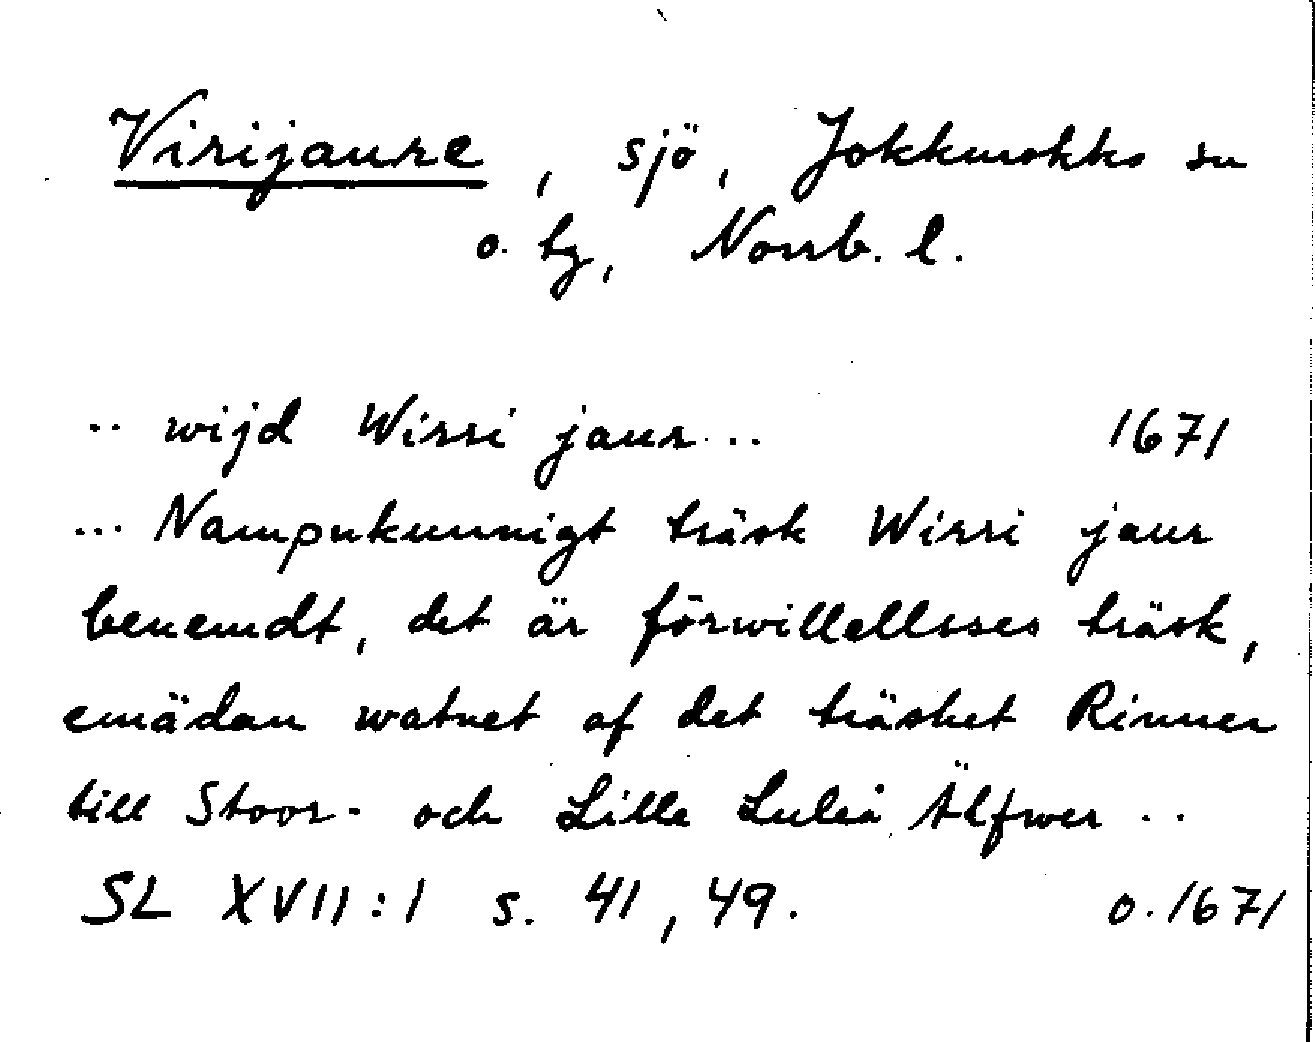 Virijaure, sjö, Jokkmokks sn
o. tg, Norrb. l.
.. wijd Wirri jaur...
1671
... Nampnkunnigt träsk Wirri jaur
benemdt, det är förwillellsses träsk,
emädan watnet af det träsket Rinner
till Stoor- och Lille Luleå Älfwer ..
SL XVII:1 s. 41, 49.
o. 1671